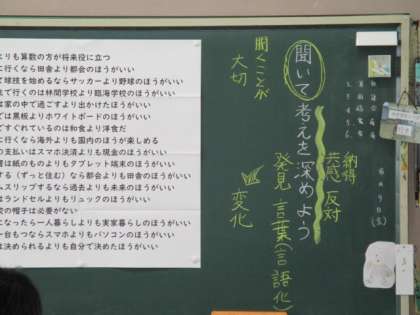 よりも算数の方が将来役に立つ
に行くなら田舎より都会のほうがいい
て球技を始めるならサッカーより野球のほうがいい
で行くのは林間学校より臨海学校のほうがいい
は家の中で過ごすより出かけたほうがいい
では黒板よりホワイトボードのほうがいい
ですぐれているのは和食より洋食だ
に行くなら海外よりも国内のほうが楽しめる
の支払いはスマホ決済より現金のほうがいい
書は紙のものよりもタブレット端末のほうがいい
する(ずっと住む)なら都会よりも田舎のほうがいい
ムスリップするなら過去よりも未来のほうがいい
はランドセルよりもリュックのほうがいい
校の帽子は必要がない
になったら一人暮らしよりも実家暮らしのほうがいい
一台もつならスマホよりもパソコンのほうがいい
は決められるよりも自分で決めたほうがいい
聞いて考えを深めよう
聞くことが
大切
納得
共感
反対
発見
言葉(言語化)
変化